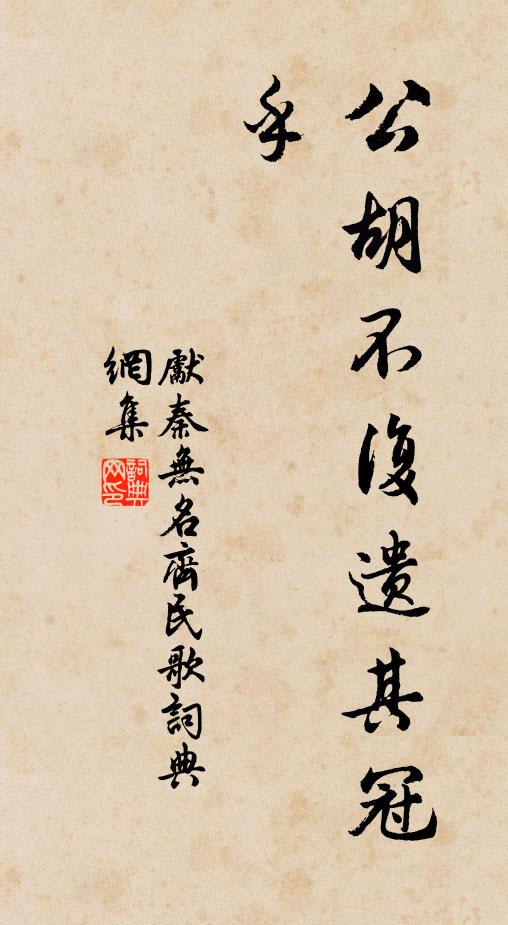 公胡不復遺其冠
乎
獻秦無名齊民歌詞典
網集
詞典
网印